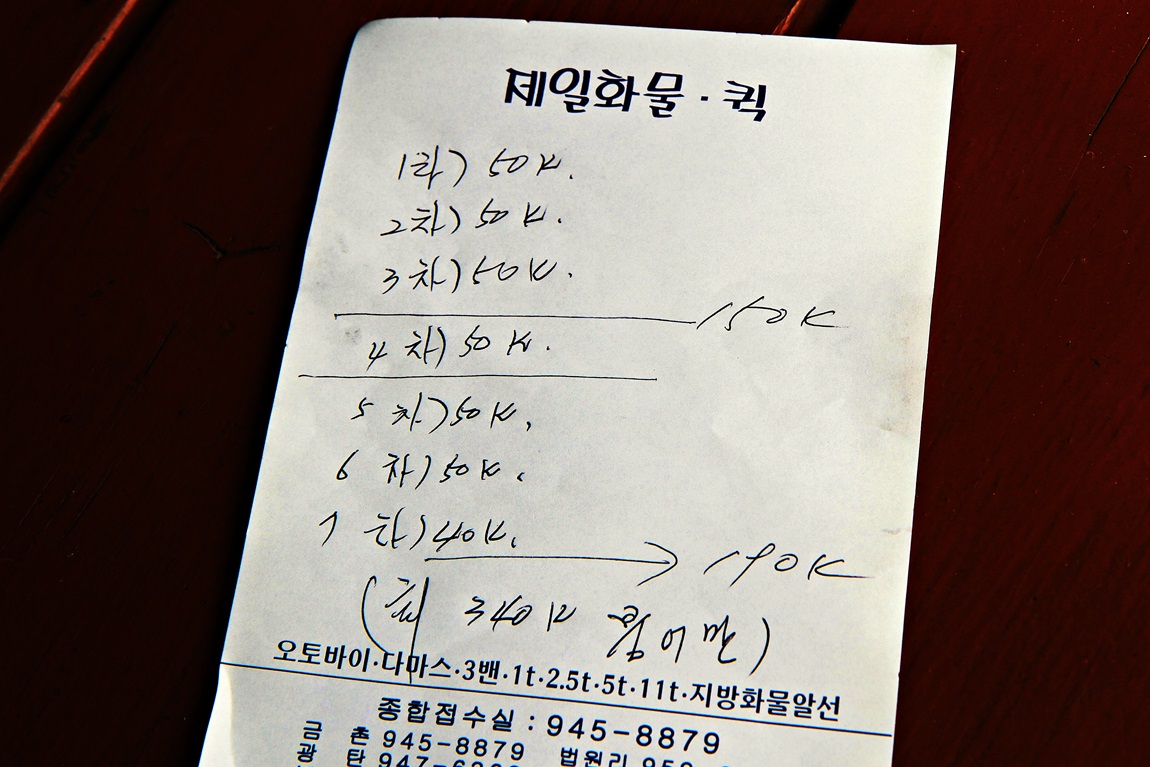 제일화물·퀵
1차) 50K.
2차) 50K.
3차) 50K.
150K
4차) 50K.
5차) 50K.
6차) 50K.
7차) 40K.
190K
(총 340K 붕어만)
오토바이·다마스·3밴·1t·2.5t·5t·11t·지방화물알선
종합접수실 : 945-8879
금 촌 945-8879 법원리
광 탄